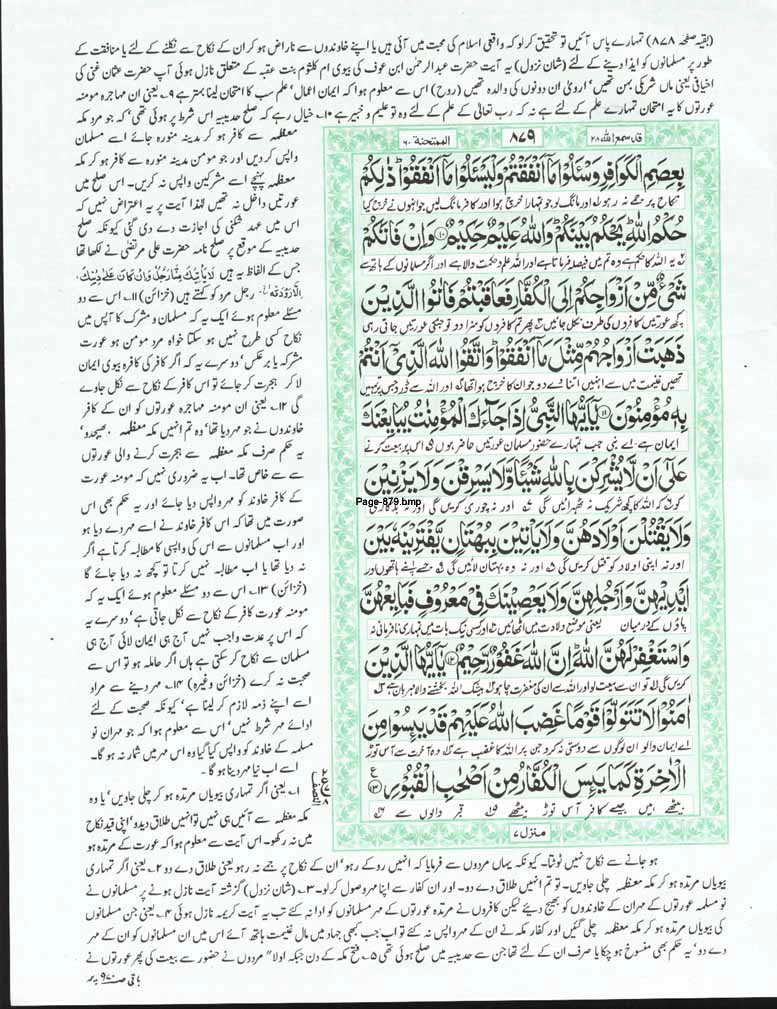 (بقیہ صفحہ ۸۷۸) تمہارے پاس آئیں تو تحقیق کر لو کہ واقعی اسلام کی محبت میں آئی ہیں یا اپنے خاوندوں سے ناراض ہو کر ان کے نکاح سے نکلنے کے لئے یا منافقت کے
طور پر مسلمانوں کو ایذا دینے کے لئے (شان نزول) یہ آیت حضرت عبدالرحمٰن ابن عوف کی بیوی ام کلثوم بنت عقبہ کے متعلق نازل ہوئی آپ حضرت عثمان غنی کی
اخیافی یعنی ماں شریکی بہن تھیں' ارویٰ ان دونوں کی والدہ تھیں (روح) اس سے معلوم ہوا کہ ایمان' اعمال' علم سب کا امتحان لینا بہتر ہے ۹۔ یعنی ان مہاجرہ مومنہ
عورتوں کا یہ امتحان تمہارے علم کے لئے ہے نہ کہ رب تعالیٰ کے علم کے لئے وہ تو علیم و خبیر ہے ۱۰۔ خیال رہے کہ صلح حدیبیہ اس شرط پر ہوئی تھی' کہ جو مرد مکہ
معظمہ سے کافر ہو کر مدینہ منورہ جائے اسے مسلمان
واپس کر دیں اور جو مومن مدینہ منورہ سے کافر ہو کر مکہ
معظمہ پہنچے اسے مشرکین واپس نہ کریں۔ اس صلح میں
عورتیں داخل نہ تھیں لہٰذا آیت پر یہ اعتراض نہیں کہ
اس میں عہد شکنی کی اجازت دے دی گئی کیونکہ صلح
حدیبیہ کے موقع پر صلح نامہ حضرت علی مرتضیٰ نے لکھا تھا
جس کے الفاظ یہ ہیں لَا يَأْتِيكَ مِنَّا رَجُلٌ وَاِنْ كَانَ عَلٰى دِيْنِكَ
رجل مرد کو کہتے ہیں (خزائن) ۱۱۔ اس سے دو
مسئلے معلوم ہوئے ایک یہ کہ مسلمان و مشرک کا آپس میں
نکاح کسی طرح نہیں ہو سکتا خواہ مرد مومن ہو عورت
مشرکہ یا برعکس' دوسرے یہ کہ اگر کافر کی کافرہ بیوی ایمان
لا کر ہجرت کر جائے تو اس کافر کے نکاح سے نکل جاوے
گی ۱۲۔ یعنی ان مومنہ مہاجرہ عورتوں کو ان کے کافر
خاوندوں نے جو مہر دیا تھا' وہ تم انہیں مکہ معظمہ بھیجدو'
یہ حکم صرف مکہ معظمہ سے ہجرت کرنے والی عورتوں
سے خاص تھا۔ اب یہ ضروری نہیں کہ مومنہ عورت
کے کافر خاوند کو مہر واپس دیا جائے اور یہ حکم بھی اس
صورت میں تھا کہ اس کافر خاوند نے اسے مہر دے دیا ہو
اور اب مسلمانوں سے اس کی واپسی کا مطالبہ کرتا ہے اگر
نہ دیا تھا یا اب مطالبہ نہیں کرتا تو کچھ نہ دیا جائے گا
(خزائن) ۱۳۔ اس سے دو مسئلے معلوم ہوئے ایک یہ کہ
مومنہ عورت کافر کے نکاح سے نکل جاتی ہے' دوسرے یہ
کہ اس پر عدت واجب نہیں آج ہی ایمان لائی آج ہی
مسلمان سے نکاح کر سکتی ہے ہاں اگر حاملہ ہو تو اس سے
صحبت نہ کرے (خزائن وغیرہ) ۱۴۔ مہر دینے سے مراد
اسے اپنے ذمہ لازم کر لینا ہے' کیونکہ صحبت کے لئے
ادائے مہر شرط نہیں' اس سے معلوم ہوا کہ جو مہر ان نو
مسلمہ کے خاوند کو واپس کیا گیا وہ اس مہر میں شمار نہ ہو گا۔
اسے اب نیا مہر دینا ہو گا۔
۱۔ یعنی اگر تمہاری بیویاں مرتدہ ہو کر چلی جاویں' یا وہ
مکہ معظمہ سے آئیں ہی نہیں تو انہیں طلاق دیدو' اپنی قید نکاح
میں نہ رکھو۔ اس آیت سے معلوم ہوا کہ عورت کے مرتدہ ہو
قد سمع اللہ ۲۸
۸۷۹
الممتحنة ۶۰
بِعِصَمِ الْكَوَافِرِ وَسْـَٔلُوْا مَاۤ اَنْفَقْتُمْ وَلْيَسْـَٔلُوْا مَاۤ اَنْفَقُوْا ذٰلِكُمْ
نکاح پر جمے نہ رہو لہ اور مانگ لو جو تمہارا خرچ ہوا اور کافر مانگ لیں جو انہوں نے خرچ کیا
حُكْمُ اللّٰهِ يَحْكُمُ بَيْنَكُمْ وَاللّٰهُ عَلِيْمٌ حَكِيْمٌ ۱۰ وَاِنْ فَاتَكُمْ
یہ اللہ کا حکم ہے وہ تم میں فیصلہ فرماتا ہے اور اللہ علم و حکمت والا ہے اور اگر مسلمانوں کے ہاتھ سے
شَيْءٌ مِّنْ اَزْوَاجِكُمْ اِلَى الْكُفَّارِ فَعَاقَبْتُمْ فَاٰتُوا الَّذِيْنَ
کچھ عورتیں کافروں کی طرف نکل جائیں پھر تم کافروں کو سزا دو تو جن کی عورتیں جاتی رہی
ذَهَبَتْ اَزْوَاجُهُمْ مِّثْلَ مَاۤ اَنْفَقُوْا وَاتَّقُوا اللّٰهَ الَّذِيْۤ اَنْتُمْ
تھیں غنیمت میں سے انہیں اتنا دے دو جو ان کا خرچ ہوا تھا اور اللہ سے ڈرو جس پر تمہیں
بِهٖ مُؤْمِنُوْنَ ۱۱ يٰۤاَيُّهَا النَّبِيُّ اِذَا جَآءَكَ الْمُؤْمِنٰتُ يُبَايِعْنَكَ
ایمان ہے اے نبی جب تمہارے حضور مسلمان عورتیں حاضر ہوں اس پر بیعت کرنے
عَلٰۤى اَنْ لَّا يُشْرِكْنَ بِاللّٰهِ شَيْـًٔا وَّلَا يَسْرِقْنَ وَلَا يَزْنِيْنَ
کو کہ اللہ کا کچھ شریک نہ ٹھہرائیں گی اور نہ چوری کریں گی اور نہ بدکاری
Page-879.bmp
وَلَا يَقْتُلْنَ اَوْلَادَهُنَّ وَلَا يَاْتِيْنَ بِبُهْتَانٍ يَّفْتَرِيْنَهٗ بَيْنَ
اور نہ اپنی اولاد کو قتل کریں گی اور نہ وہ بہتان لائیں گی جسے اپنے ہاتھوں اور
اَيْدِيْهِنَّ وَاَرْجُلِهِنَّ وَلَا يَعْصِيْنَكَ فِيْ مَعْرُوْفٍ فَبَايِعْهُنَّ
پاؤں کے درمیان یعنی موضع ولادت میں اٹھائیں اور کسی نیک بات میں تمہاری نافرمانی نہ
وَاسْتَغْفِرْ لَهُنَّ اللّٰهَ اِنَّ اللّٰهَ غَفُوْرٌ رَّحِيْمٌ ۱۲ يٰۤاَيُّهَا الَّذِيْنَ
کریں گی تو ان سے بیعت لو اور اللہ سے ان کی مغفرت چاہو بیشک اللہ بخشنے والا مہربان ہے
اٰمَنُوْا لَا تَتَوَلَّوْا قَوْمًا غَضِبَ اللّٰهُ عَلَيْهِمْ قَدْ يَئِسُوْا مِنَ
اے ایمان والو ان لوگوں سے دوستی نہ کرو جن پر اللہ کا غضب ہے وہ آخرت سے آس توڑ
الْاٰخِرَةِ كَمَا يَئِسَ الْكُفَّارُ مِنْ اَصْحٰبِ الْقُبُوْرِ ۱۳
بیٹھے ہیں جیسے کافر آس توڑ بیٹھے قبر والوں سے
منزل ۷
ہو جانے سے نکاح نہیں ٹوٹتا۔ کیونکہ یہاں مردوں سے فرمایا کہ انہیں روکے رہو' ان کے نکاح پر جمے نہ رہو یعنی طلاق دے دو ۲۔ یعنی اگر تمہاری
بیویاں مرتدہ ہو کر مکہ معظمہ چلی جاویں۔ تو تم انہیں طلاق دے دو۔ اور ان کفار سے اپنا مہر وصول کر لو۔ ۳۔ (شان نزول) گزشتہ آیت نازل ہونے پر مسلمانوں نے
نو مسلمہ عورتوں کے مہر ان کے خاوندوں کو بھیج دیئے لیکن کافروں نے مرتدہ عورتوں کے مہر مسلمانوں کو ادا نہ کئے تب یہ آیت کریمہ نازل ہوئی ۴۔ یعنی جن مسلمانوں
کی بیویاں مرتدہ ہو کر مکہ معظمہ چلی گئیں اور کفار مکہ نے ان کے مہر واپس نہ کئے تو اب جب کبھی جہاد میں مال غنیمت ہاتھ آئے اس میں ان مسلمانوں کو ان کے مہر
دے دو' یہ حکم بھی منسوخ ہو چکا یا صرف ان کے لئے تھا جن سے حدیبیہ میں صلح ہوئی تھی ۵۔ فتح مکہ کے دن جبکہ اولاً مردوں نے حضور سے بیعت کی پھر عورتوں نے
باقی صـ ۹۷۰ پر